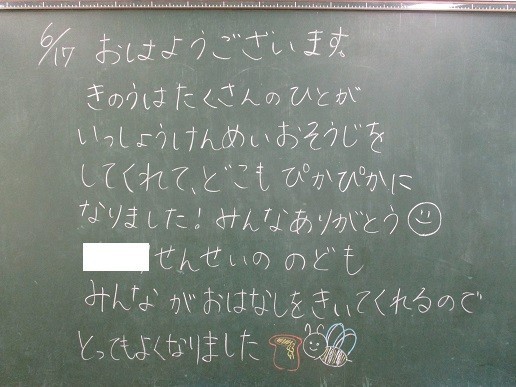 6/17 おはようございます。
きのうはたくさんのひとが
いっしょうけんめいおそうじを
してくれて、どこも ぴかぴかに
なりました! みんなありがとう
せんせいの のども
みんな がおはなしをきいてくれるので
とってもよくなりました